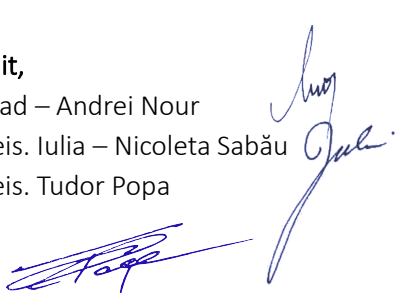 it,
ad – Andrei Nour
eis. Iulia – Nicoleta Sabău
eis. Tudor Popa